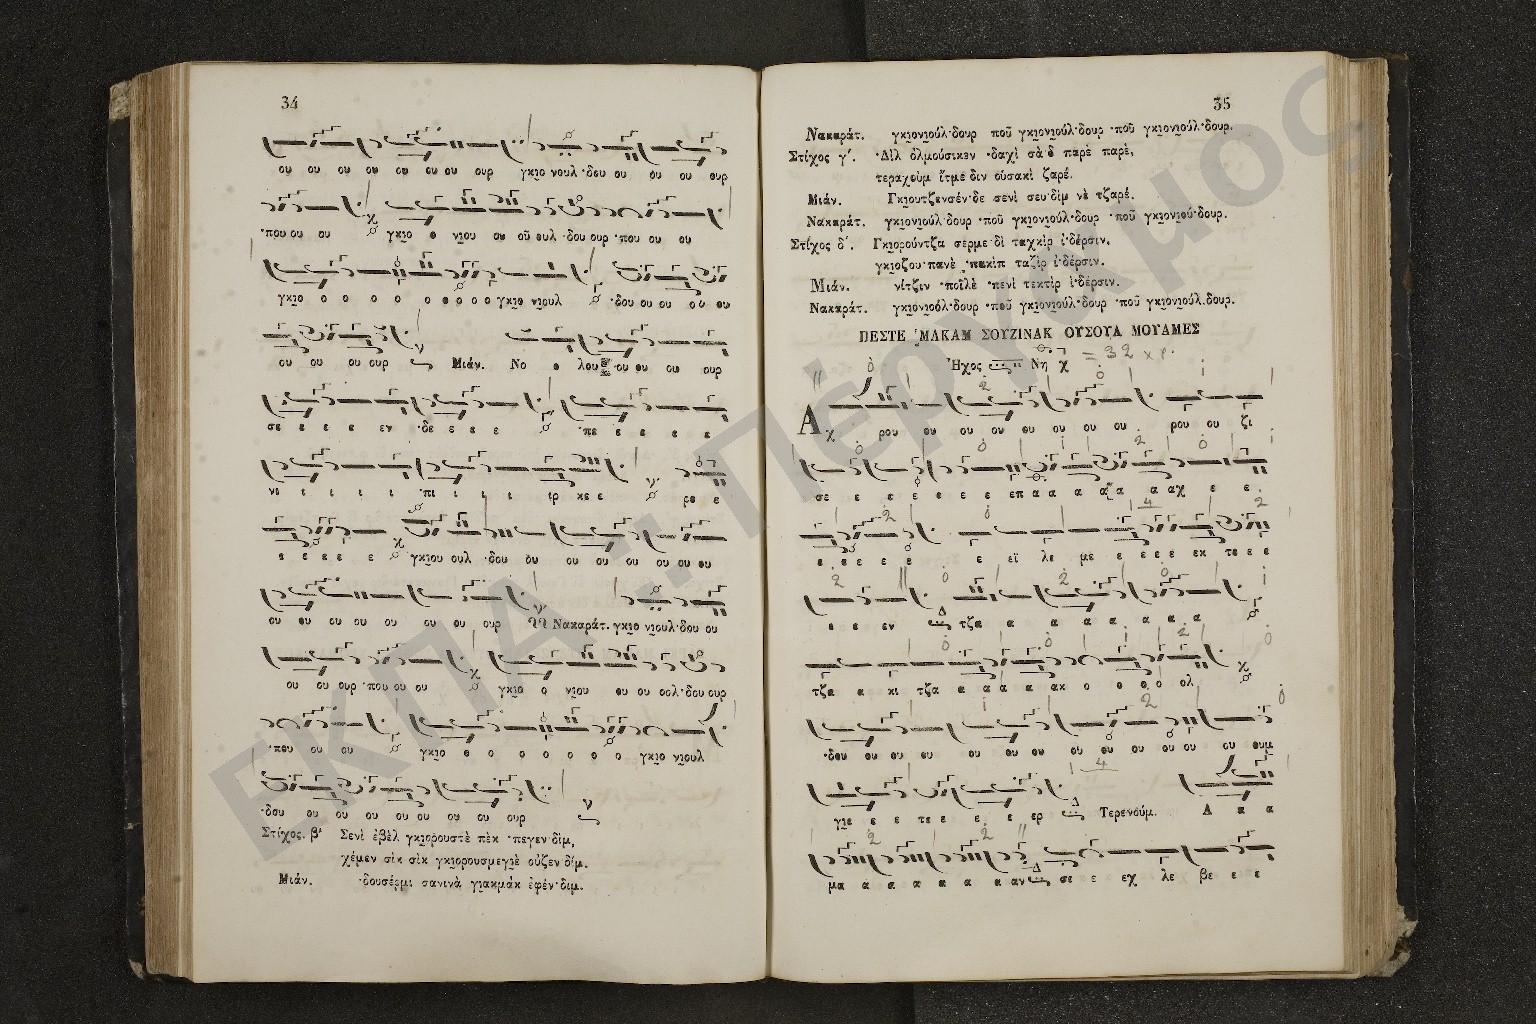 34
ου ου ου ου ου ου ου ουρ γκιο νουλ ·δου ου ου ου ουρ
·που ου ου γκιο ο νιου ου οῦ ουλ ·δου ουρ ·που ου ου
γκιο ο ο ο ο ο ο ο ο ο γκιο νιουλ ·δου ου ου ου ου
ου ου ου ουρ Μιάν. Νο ο λου ου ου ου ουρ
σε ε ε ε εν ·δε ε ε ε ·πε ε ε ε ε
νι ι ι ι ι ·πι ι ι ι ιρ κε ε ρε ε
ε ε ε ε ε γκιου ουλ ·δου ου ου ου ου ου ου ου
ου ου ου ου ου ου ου ουρ Νακαράτ. γκιο νιουλ ·δου ου
ου ου ουρ ·που ου ου γκιο ο νιου ου ου οολ ·δου ουρ
·που ου ου γκιο ο ο ο ο ο ο ο γκιο νιουλ
·δου ου ου ου ου ου ου ου ουρ
Στίχος. β΄ Σενὶ ἐβὲλ γκιορουστὲ πὲκ ·πεγεν·δίμ,
χέμεν σὶκ σὶκ γκιορουσμεγιὲ οὐζεν·δίμ.
Μιάν. ·δουσέρμι σανινὰ γιακμάκ ἐφέν·διμ.
35
Νακαράτ. γκιονιούλ·δουρ ποῦ γκιονιούλ·δουρ ·ποῦ γκιονιούλ·δουρ.
Στίχος γ΄. ·Δὶλ ὀλμούσικεν ·δαχὶ σὰ·δ παρὲ παρὲ,
τεραχοὺμ ἴτμε·διν οὐσακὶ ζαρέ.
Μιάν. Γκιουτζενσέν·δε σενὶ σευ·δὶμ νὲ τζαρέ.
Νακαράτ. γκιονιούλ·δουρ ·ποῦ γκιονιούλ·δουρ ·ποῦ γκιονιού·δουρ.
Στίχος δ΄. Γκιορούντζα σερμε·δὶ ταχκὶρ ἰ·δέρσιν.
γκιοζου·πανὲ ·πακὶπ ταζὶρ ἰ·δέρσιν.
Μιάν. νίτζιν ·ποῖλὲ ·πενὶ τεκτὶρ ἰ·δέρσιν.
Νακαράτ. γκιονιοόλ·δουρ ·ποῦ γκιονιούλ·δουρ ·ποῦ γκιονιούλ.δουρ.
ΠΕΣΤΕ ΜΑΚΑΜ ΣΟΥΖΙΝΑΚ ΟΥΣΟΥΛ ΜΟΥΑΜΕΣ
Ἦχος Νη = 32 χρ.
Α χ ρου ου ου ου ου ου ου ου ρου ου ζι
σε ε ε ε ε ε ε επ α α α α α αχ ε ε
ε ε ε ε ε ε εϊ λε με ε ε ε ε εκ τε ε ε
ε ε εν τζα α α α α α α α
τζα α κι τζα α α α α ακ ο ο ο ο ολ
·δου ου ου ου ου ου ου ου ου ου ου ου ου ουμ
γιε ε ε τε ε ε ε ερ Τερενούμ. Α α α
μα α α α α α α αν σε ε εχ λε βε ε ε
ΕΚΠΑ :: Πέργαμος